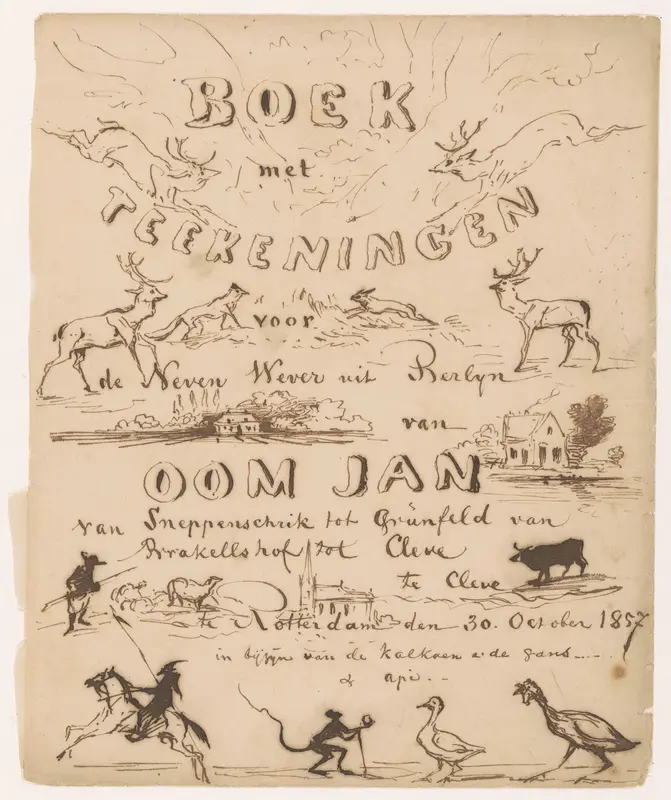 BOEK
met
TEEKENINGEN
voor
de Neven Wever uit Berlyn
van
OOM JAN
van Sneppenschrik tot Grünfeld van
Brakellshof tot Cleve
te Cleve
te Rotterdam den 30. October 1857
in bijzyn van de kalkoen & de gans
& api. -